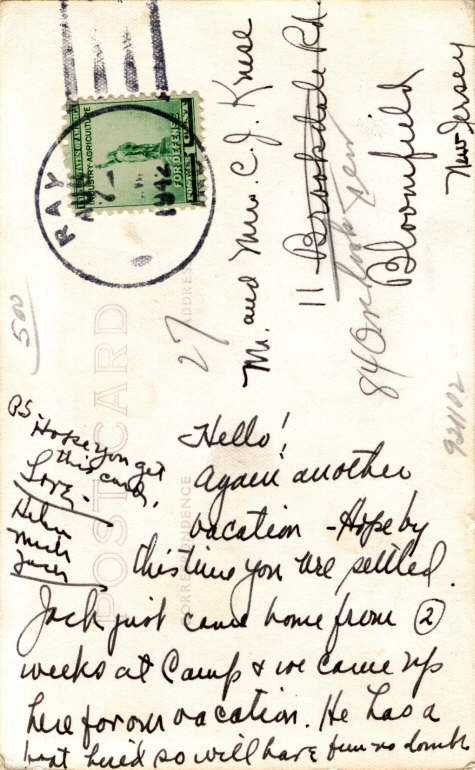 RAY
1942
UNITED STATES OF AMERICA
INDUSTRY AGRICULTURE
FOR DEFENSE
POSTAGE
1 CENT
Mr. and Mrs. C. J. Kruse
11 Brookdale Rd.
Bloomfield
New Jersey
84
27
500
921102
POST CARD
CORRESPONDENCE
ADDRESS
PS
Hope you get
this card,
Love -
Helen
Jack
Hello!
Again another
vacation - Hope by
this time you are settled.
Jack just came home from 2
weeks at Camp & we came up
here for our vacation. He has a
boat hired so will have fun no doubt